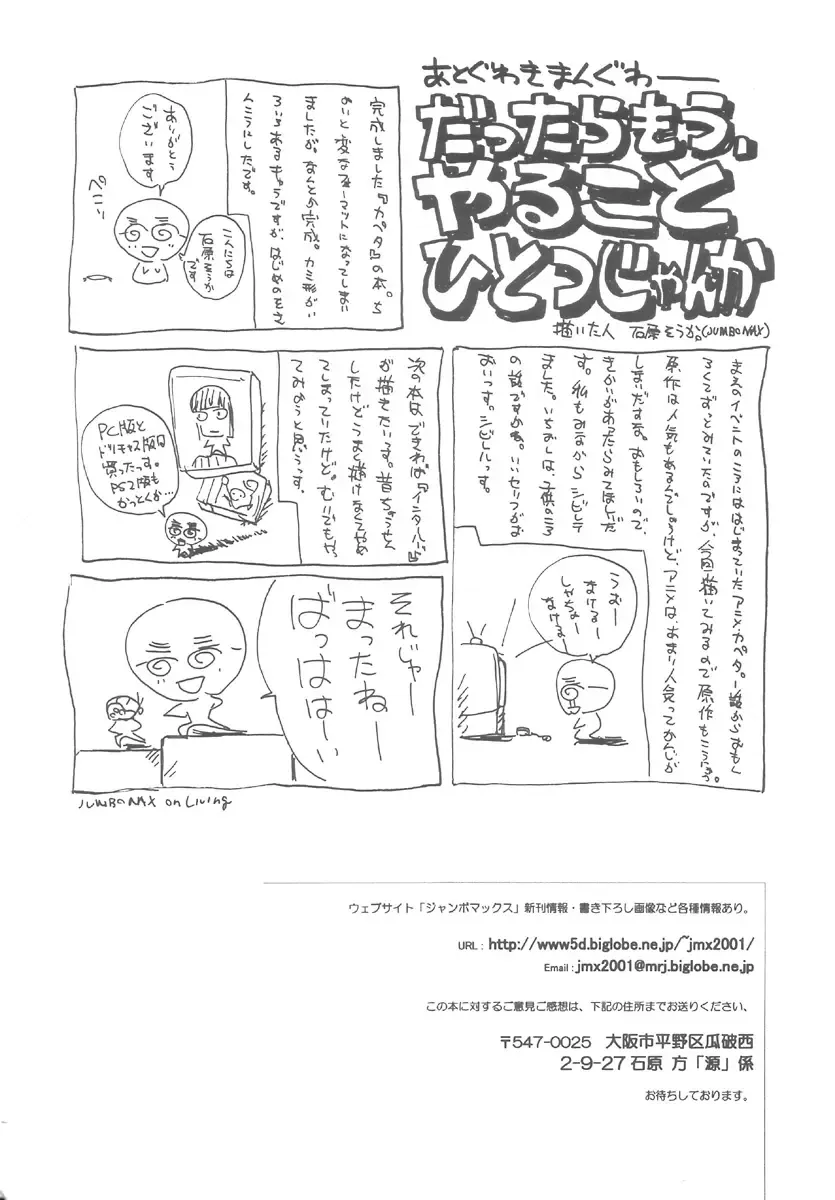 あとぐわきまんぐわー
だったらもう、
やること
ひとつじゃんか
描いた人 石原そうか。(JUMBOMAX)
完成しました『カペタ』の本。ち
ょいと変なフォーマットになってしまい
ましたが、なんとか完成。カミ形がい
ろいろあるキャラですが、はじめのモサ
んこうにしたです。
ありがとう
ございます
こんにちは
石原そうか
です
ペこり
まえのイベントのころにははじまっていたアニメ・カペタ。一話からおもし
ろくてずっとみていたのですが、今回描いてみるので原作もこうにゅう。
原作は人気もあるんでしょうけど、アニメは、あまり人気ってかんじが
しまいだすな。おもしろいので、
きかいがあったらみてほしいだ
す。私もみながらシビレテ
ました。いちおしは、子供のころ
の話ですかね。いいセリフがお
おいっす。シビレルっす。
うおー
まけるー
しゃちょー
なけるー
次の本は、できれば『イニシャルD』
が描きたいっす。昔ちょうせん
したけどうまく描けなくてやめ
てしまっていたけど。むりでもやっ
てみようと思うっす。
PC版と
ドリキャス版は
買ったっす。
PS2版も
かっとくか…
それじゃー
まったねー
ばっははーい
JUMBOMAX on Living
ウェブサイト「ジャンボマックス」新刊情報・書き下ろし画像など各種情報あり。
URL : http://www5d.biglobe.ne.jp/~jmx2001/
Email : jmx2001@mrj.biglobe.ne.jp
この本に対するご意見ご感想は、下記の住所までお送りください、
〒547-0025 大阪市平野区瓜破西
2-9-27 石原 方「源」係
お待ちしております。